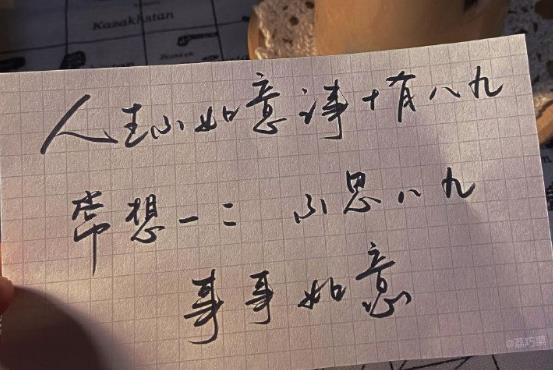 Kazakhstan
人生不如意事十有八九
常想一二 不思八九
事事如意
@荔巧梁